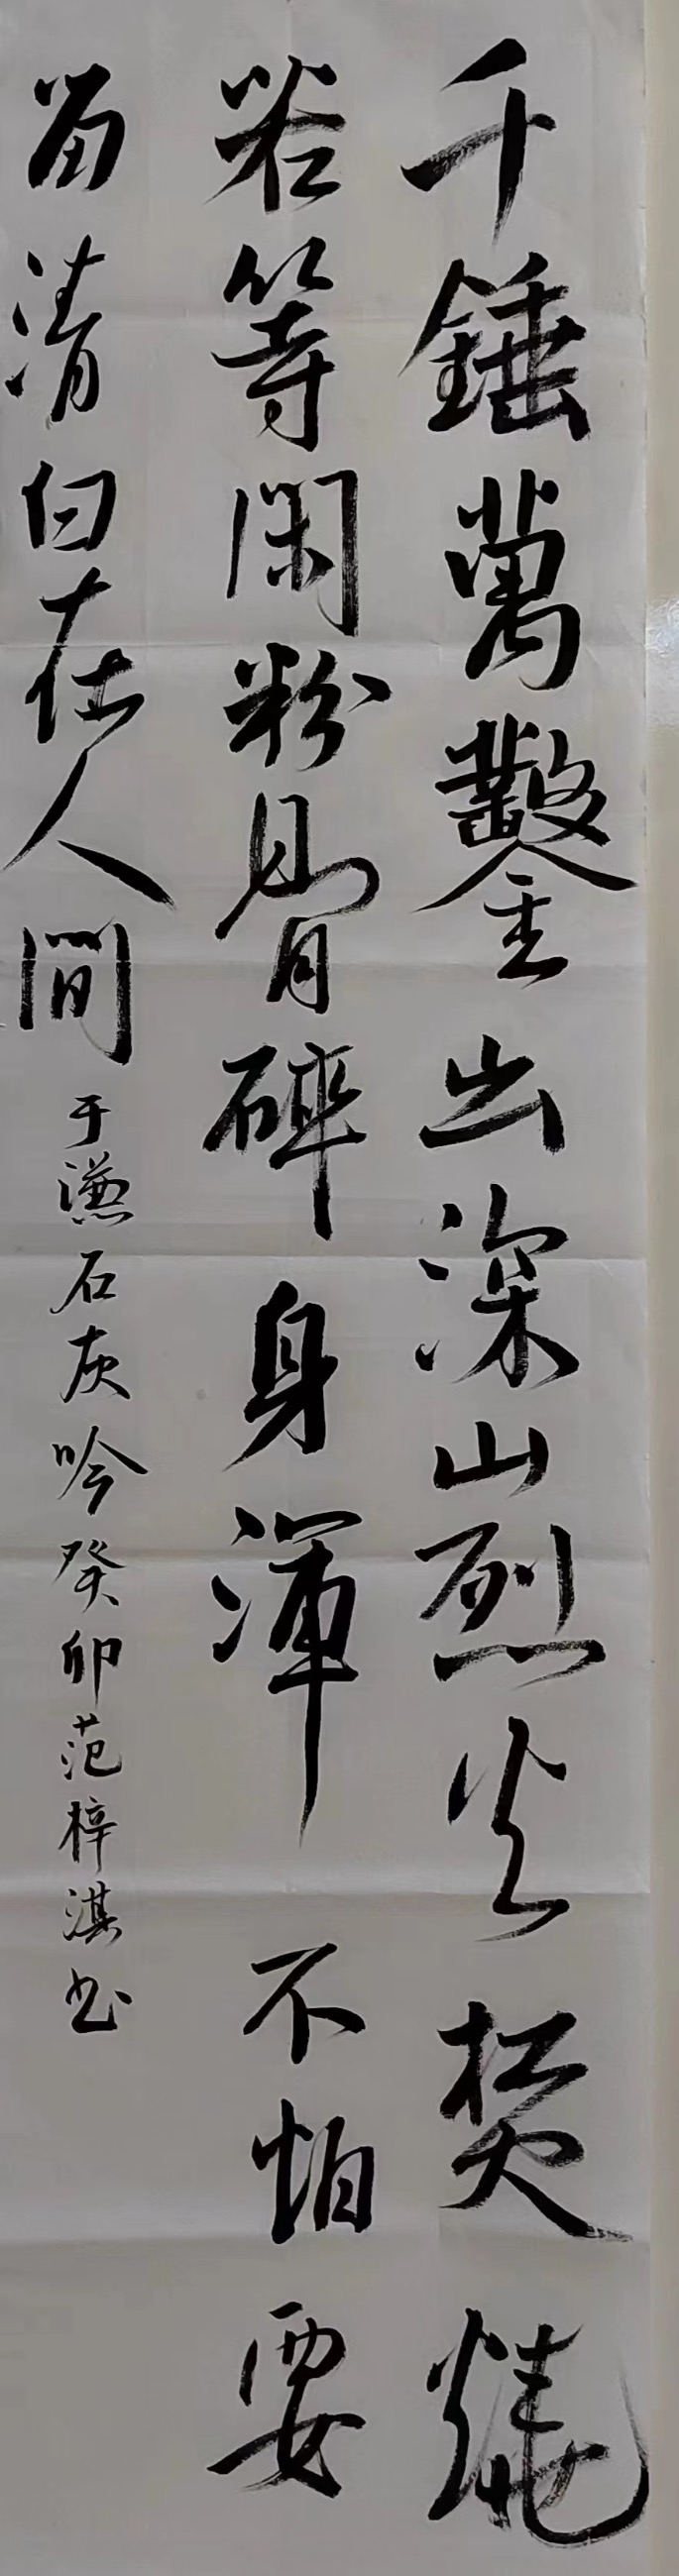 千錘萬鑿出深山烈火焚燒
若等閑粉骨碎身渾不怕要
留清白在人間于谦石灰吟癸卯范梓淇书